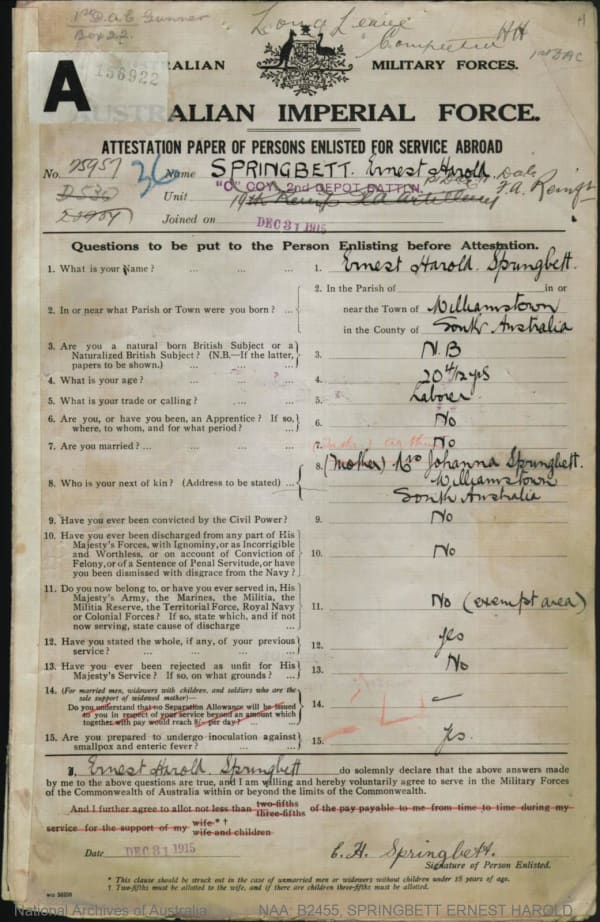 1st D.A.C. Gunner
Box 22.
Long Leave
Completed HH
1st DAC
156922
A
AUSTRALIAN MILITARY FORCES.
AUSTRALIAN IMPERIAL FORCE.
ATTESTATION PAPER OF PERSONS ENLISTED FOR SERVICE ABROAD
No. 25957 36 Name SPRINGBETT. Ernest Harold
Unit "C" COY. 2nd DEPOT BATTLN. F.A. Reinfts
Joined on DEC 31 1915
Questions to be put to the Person Enlisting before Attestation.
1. What is your Name? ... ... ... 1. Ernest Harold Springbett.
2. In or near what Parish or Town were you born? ... 2. In the Parish of in or
near the Town of Williamstown
in the County of South Australia
3. Are you a natural born British Subject or a
Naturalized British Subject? (N.B.—If the latter,
papers to be shown.) ... ... 3. N.B
4. What is your age? ... ... ... 4. 20 4/12 yrs
5. What is your trade or calling? ... ... 5. Laborer
6. Are you, or have you been, an Apprentice? If so,
where, to whom, and for what period? ... 6. No
7. Are you married? ... ... ... ... 7. No
8. Who is your next of kin? (Address to be stated) ... 8. (Mother) Mrs Johanna Springbett.
Williamstown
South Australia
9. Have you ever been convicted by the Civil Power? 9. No
10. Have you ever been discharged from any part of His
Majesty's Forces, with Ignominy, or as Incorrigible
and Worthless, or on account of Conviction of
Felony, or of a Sentence of Penal Servitude, or have
you been dismissed with disgrace from the Navy? 10. No
11. Do you now belong to, or have you ever served in, His
Majesty's Army, the Marines, the Militia, the
Militia Reserve, the Territorial Force, Royal Navy
or Colonial Forces? If so, state which, and if not
now serving, state cause of discharge ... 11. No (exempt area)
12. Have you stated the whole, if any, of your previous
service? ... ... ... ... 12. yes
13. Have you ever been rejected as unfit for His
Majesty's Service? If so, on what grounds? ... 13. No
14. (For married men, widowers with children, and soldiers who are the
sole support of widowed mother)—
Do you understand that no Separation Allowance will be issued
to you in respect of your service beyond an amount which
together with pay would reach 8/- per day? ... ... 14. —
15. Are you prepared to undergo inoculation against
smallpox and enteric fever? ... ... 15. Yes.
I, Ernest Harold Springbett do solemnly declare that the above answers made
by me to the above questions are true, and I am willing and hereby voluntarily agree to serve in the Military Forces
of the Commonwealth of Australia within or beyond the limits of the Commonwealth.
And I further agree to allot not less than two-fifths three-fifths of the pay payable to me from time to time during my
service for the support of my wife * † wife and children
Date DEC 31 1915 E. H. Springbett.
Signature of Person Enlisted.
* This clause should be struck out in the case of unmarried men or widowers without children under 18 years of age.
† Two-fifths must be allotted to the wife, and if there are children three-fifths must be allotted.
National Archives of Australia NAA: B2455, SPRINGBETT ERNEST HAROLD